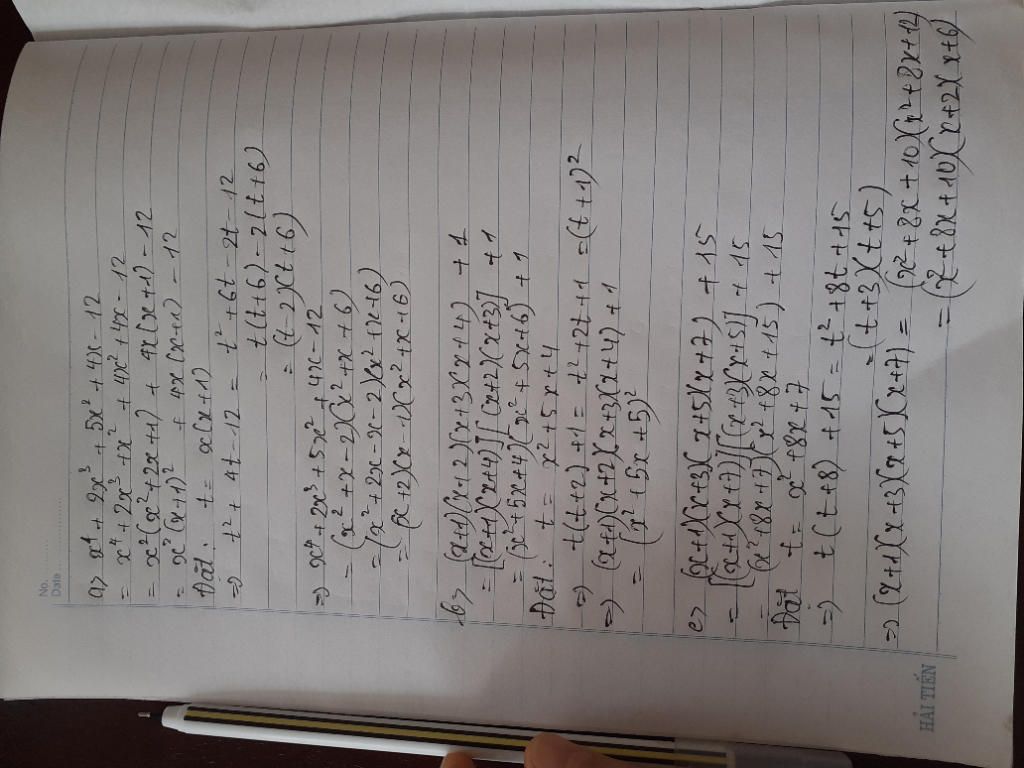 No.
Date
a> x⁴ + 2x³ + 5x² + 4x - 12
= x⁴ + 2x³ + x² + 4x² + 4x - 12
= x²(x² + 2x + 1) + 4x(x + 1) - 12
= x²(x + 1)² + 4x(x + 1) - 12
Đặt: t = x(x + 1)
=> t² + 4t - 12 = t² + 6t - 2t - 12
= t(t + 6) - 2(t + 6)
= (t - 2)(t + 6)
=> x⁴ + 2x³ + 5x² + 4x - 12
= (x² + x - 2)(x² + x + 6)
= (x² + 2x - x - 2)(x² + x + 6)
= (x + 2)(x - 1)(x² + x + 6)
b> (x+1)(x+2)(x+3)(x+4) + 1
= [(x+1)(x+4)][(x+2)(x+3)] + 1
= (x² + 5x + 4)(x² + 5x + 6) + 1
Đặt: t = x² + 5x + 4
=> t(t + 2) + 1 = t² + 2t + 1 = (t + 1)²
=> (x+1)(x+2)(x+3)(x+4) + 1
= (x² + 5x + 5)²
c> (x+1)(x+3)(x+5)(x+7) + 15
= [(x+1)(x+7)][(x+3)(x+5)] + 15
= (x² + 8x + 7)(x² + 8x + 15) + 15
Đặt t = x² + 8x + 7
=> t(t + 8) + 15 = t² + 8t + 15
= (t + 3)(t + 5)
=> (x+1)(x+3)(x+5)(x+7) = (x² + 8x + 10)(x² + 8x + 12)
= (x² + 8x + 10)(x + 2)(x + 6)
HẢI TIẾN